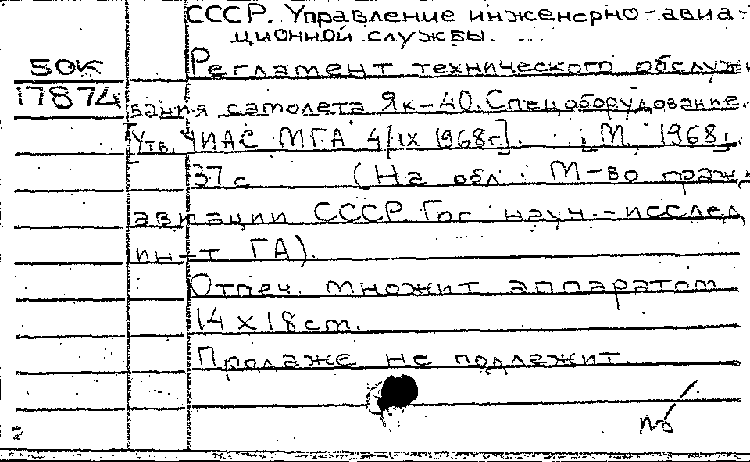 СССР. Управление инженерно-авиа-
ционной службы. ...
50К
Регламент технического обслужи
17874
вания самолета Як-40. Спецоборудование.
Утв. УИАС МГА 4/IX 1968г]. [М. 1968].
37 с (На обл.: М-во гражд
авиации СССР. Гос. науч.-исслед
ин-т ГА).
Отпеч. множит аппаратом
14 х 18 cm.
Продаже не подлежит